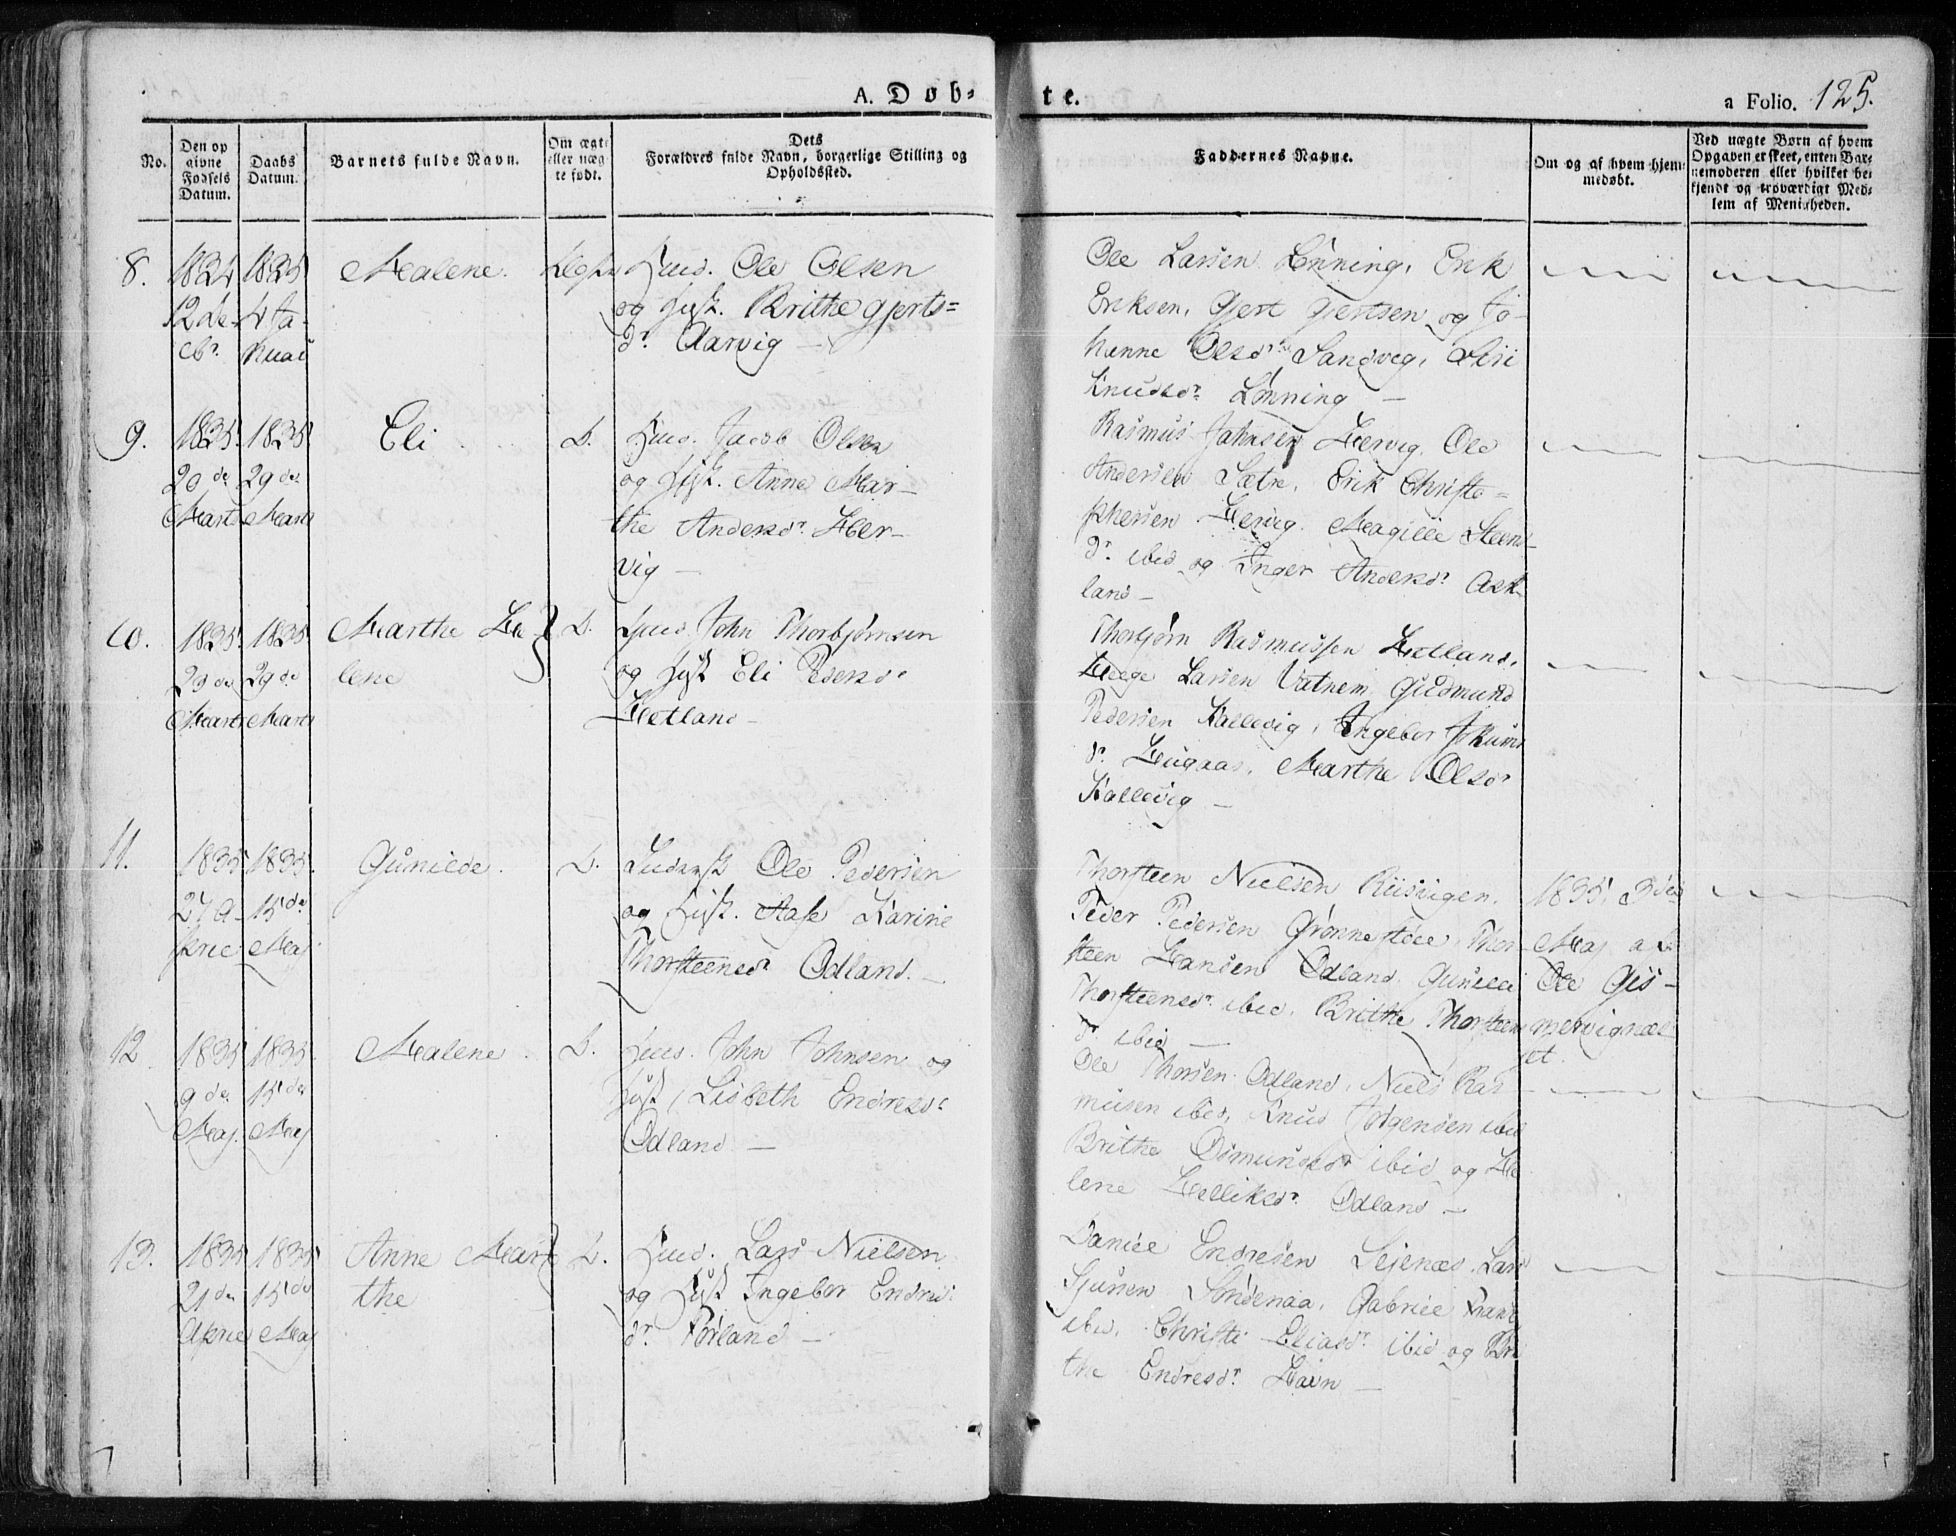 A. Døb-
te.
a Folio. 125.
No.
Den op
givne
Fødsels
Datum.
Daabs
Datum.
Barnets fulde Navn.
Om ægte
eller uæg-
te født.
Dets
Forældres fulde Navn, borgerlige Stilling og
Opholdssted.
Faddernes Navne.
Om og af hvem hjem-
medøbt.
Ved uægte Børn af hvem
Opgaven er skeet, enten Bar-
nemoderen eller hvilket be-
kjendt og troværdigt Med-
lem af Menigheden.
8.
1834
12 de
cbr.
1835
4 Ja-
nuar
Malene.
Huus. Ole Olsen
og Hust. Brithe Gjerts-
dr. Aarvig —
Ole Larsen Lønning, Erik
Eriksen, Gjert Gjertsen og Jo-
hanne Olsdr. Sandvig, Siri
Knudsdr. Lønning —
9.
1835
20 de
Marts
1835
29 de
Marts
Eli
D.
Huus. Jacob Olsen
og Hust. Anne Mar-
the Andersdr. Her-
vig —
Rasmus Johnsen Hervig, Ole
Andersen Sætre, Erik Christo-
phersen Hervig. Magille Steens-
dr. ibid og Inger Andersdr. Ask-
land —
10.
1835
23 de
Marts
1835
29 de
Marts
Marthe He-
lene
D.
Huus John Thorbjørnsen
og Hust Eli Pedersdr
Hetland —
Thorbjørn Rasmussen Hetland,
Helge Larsen Vatnem, Gudmund
Pedersen Hallevig, Ingebor Jokums
dr. Haugaas, Marthe Olsdr
Hallevig —
11.
1835
27 A-
pril
1835.
15 de
Maj
Gunilde.
D.
Ole Pedersen
og Hust. Aase Karine
Thorsteensdr. Odland. —
Thorsteen Nielsen Riisvigen,
Peder Pedersen Grønnestøl, Thor-
steen Hansen Odland, Gunild
Thorsteensdr. ibid, Brithe Thorsteens
dr. ibid —
1835, 3 de
Maj af
Ole Gis-
mervignæs
et.
12
1835
9 de
Maj.
1835.
15 de
Maj
Malene.
D.
Huus. John Johnsen og
Hust, Lisbeth Endresdr
Odland —
Ole Thorsen Odland, Niels Ras
musen ibid, Knud Jørgensen ibid
Brithe Osmundsdr ibid og He
lene Helliksdr. Odland —
13.
1835
21 de
April
1835
15 de
Maj
Anne Mar-
the
D.
Huus. Lars Nielsen
og Hust Ingebor Endres-
dr. Førland —
Daniel Endresen Leienæs, Lars
Sjursen Søndenaa, Gabriel
ibid, Christi Eliasdr. ibid og Bri
the Endresdr. Havn —